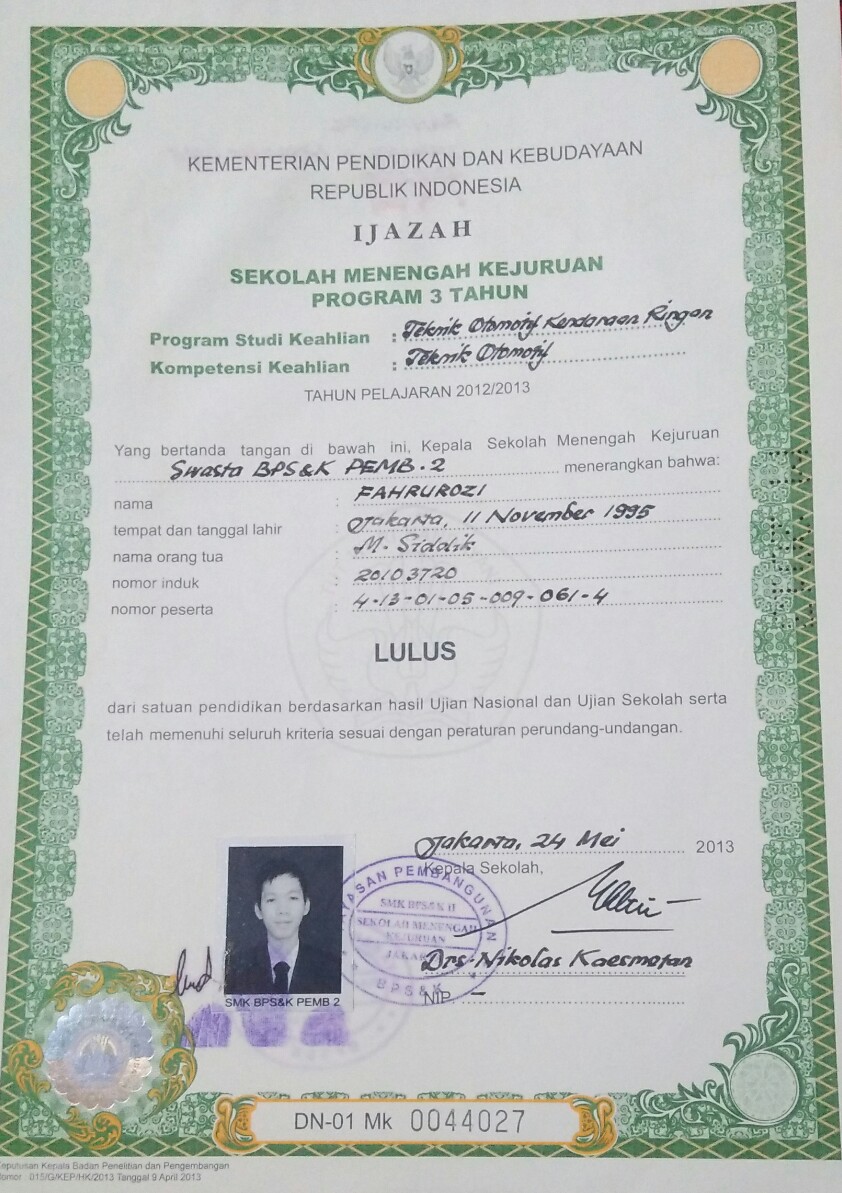 KEMENTERIAN PENDIDIKAN DAN KEBUDAYAAN
REPUBLIK INDONESIA
IJAZAH
SEKOLAH MENENGAH KEJURUAN
PROGRAM 3 TAHUN
Program Studi Keahlian : Teknik Otomotif Kendaraan Ringan
Kompetensi Keahlian : Teknik Otomotif
TAHUN PELAJARAN 2012/2013
Yang bertanda tangan di bawah ini, Kepala Sekolah Menengah Kejuruan
Swasta BPS&K PEMB. 2 menerangkan bahwa:
nama : FAHRUROZI
tempat dan tanggal lahir : Jakarta, 11 November 1995
nama orang tua : M. Siddik
nomor induk : 20103720
nomor peserta : 4-13-01-05-009-061-4
LULUS
dari satuan pendidikan berdasarkan hasil Ujian Nasional dan Ujian Sekolah serta
telah memenuhi seluruh kriteria sesuai dengan peraturan perundang-undangan.
Jakarta, 24 Mei 2013
Kepala Sekolah,
YAYASAN PEMBANGUNAN
SMK BPS&K II
SEKOLAH MENENGAH
KEJURUAN
JAKARTA
BPS&K
Drs. Nikolas Kaesmetan
NIP. -
SMK BPS&K PEMB 2
DN-01 Mk 0044027
Keputusan Kepala Badan Penelitian dan Pengembangan
Nomor : 015/G/KEP/HK/2013 Tanggal 9 April 2013